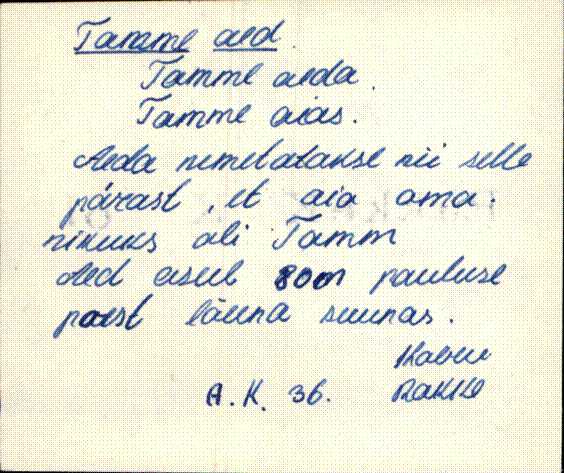 Tamme aed.
Tamme aeda.
Tamme aias.
Aeda nimetatakse nii selle
pärast, et aia oma.
nikuks oli Tamm
Aed asub 800m pauluse
paest lõuna suunas.
A.K. 36. Rakke